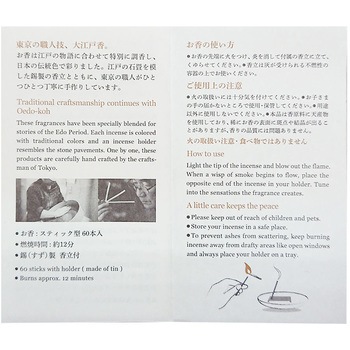 東京の職人技、大江戸香。
お香は江戸の物語に合わせて特別に調香し、
日本の伝統色で彩りました。江戸の石畳を模
した錫製の香立とともに、東京の職人がひと
つひとつ丁寧に手作りしています。
Traditional craftsmanship continues with
Oedo-koh
These fragrances have been specially blended for
stories of the Edo Period. Each incense is colored
with traditional colors and an incense holder
resembles the stone pavements. One by one, these
products are carefully hand crafted by the crafts-
man of Tokyo.
●お香：スティック型 60本入
●燃焼時間：約12分
●錫（すず）製 香立付
●60 sticks with holder ( made of tin )
●Burns approx. 12 minutes
お香の使い方
●お香の先端に火をつけ、炎を消して付属の香立に立て、
くゆらせてください。●香立は灰が受けられる不燃性の
容器の上でお使いください。
ご使用上の注意
●火の取扱いには十分気を付けてください。●お子さま
の手の届かないところで使用・保管してください。●用途
以外に使用しないでください。●本品は香原料に天産物
を使用しており、稀にお香の表面に斑点や結晶が出るこ
とがありますが、香りの品質には問題ありません。
火の取扱い注意・食べ物ではありません
How to use
Light the tip of the incense and blow out the flame.
When a wisp of smoke begins to flow, place the
opposite end of the incense in your holder. Tune
into the sensations the fragrance creates.
A little care keeps the peace
●Please keep out of reach of children and pets.
●Store your incense in a safe place.
●To prevent ashes from scattering, keep burning
incense away from drafty areas like open windows
and always place your holder on a tray.